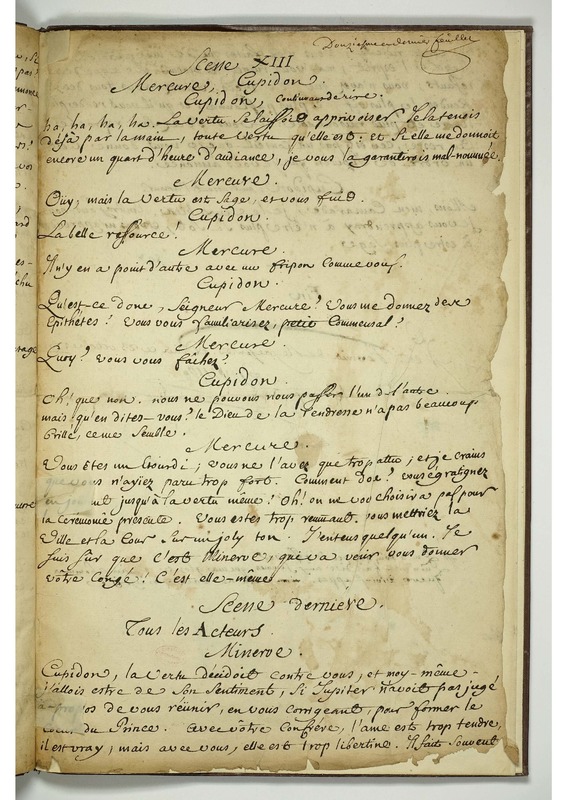 Douziesme et dernier feüillet
Scene XIII
Mercure, Cupidon.
Cupidon, continuant de rire.
ha, ha, ha, ha. La vertu se laissoit apprivoiser. Je la tenois
déja par la main, toute vertu qu'elle est. et si elle me donnoit
encore un quart d'heure d'audiance, je vous la garantirois mal-nommée.
Mercure.
Ouy; mais la vertu est sage, et vous fuit.
Cupidon.
La belle ressource!
Mercure.
Il n'y en a point d'autre avec un fripon comme vous.
Cupidon.
Qu'est-ce donc, Seigneur Mercure? Vous me donnez des
Epithétes! Vous vous familiarisez, petit Commensal?
Mercure.
Quoy? vous vous fâchez?
Cupidon.
Oh! que non. nous ne pouvons nous passer l'un de l'autre
mais qu'en dites-vous? le Dieu de la Tendresse n'a pas beaucoup
brillé, ce me semble.
Mercure.
Vous êtes un Etourdi; vous ne l'avez que trop attu; et je crains
que vous n'ayiez paru trop fort. Comment donc? vous égratignez
jusqu'à la vertu même! Oh! on ne vous choisira pas pour
la Cérémonie présente. Vous estes trop remuant. vous mettriez la
Ville et la Cour sur un joly ton. J'entens quelqu'un. Je
suis sûr que c'est Minerve, qui va venir vous donner
vôtre Congé! C'est elle-même
Scene derniere.
Tous les Acteurs.
Minerve.
Cupidon, la vertu décidoit contre vous; et moy-même
j'allois estre de son sentiment, si Jupiter n'avoit pas jugé
à-propos de vous réunir, en vous corrigeant, pour former le
coeur du Prince. Avec vôtre Confrére, l'ame est trop tendre,
il est vray; mais avec vous, elle est trop libertine. Il fait souvent